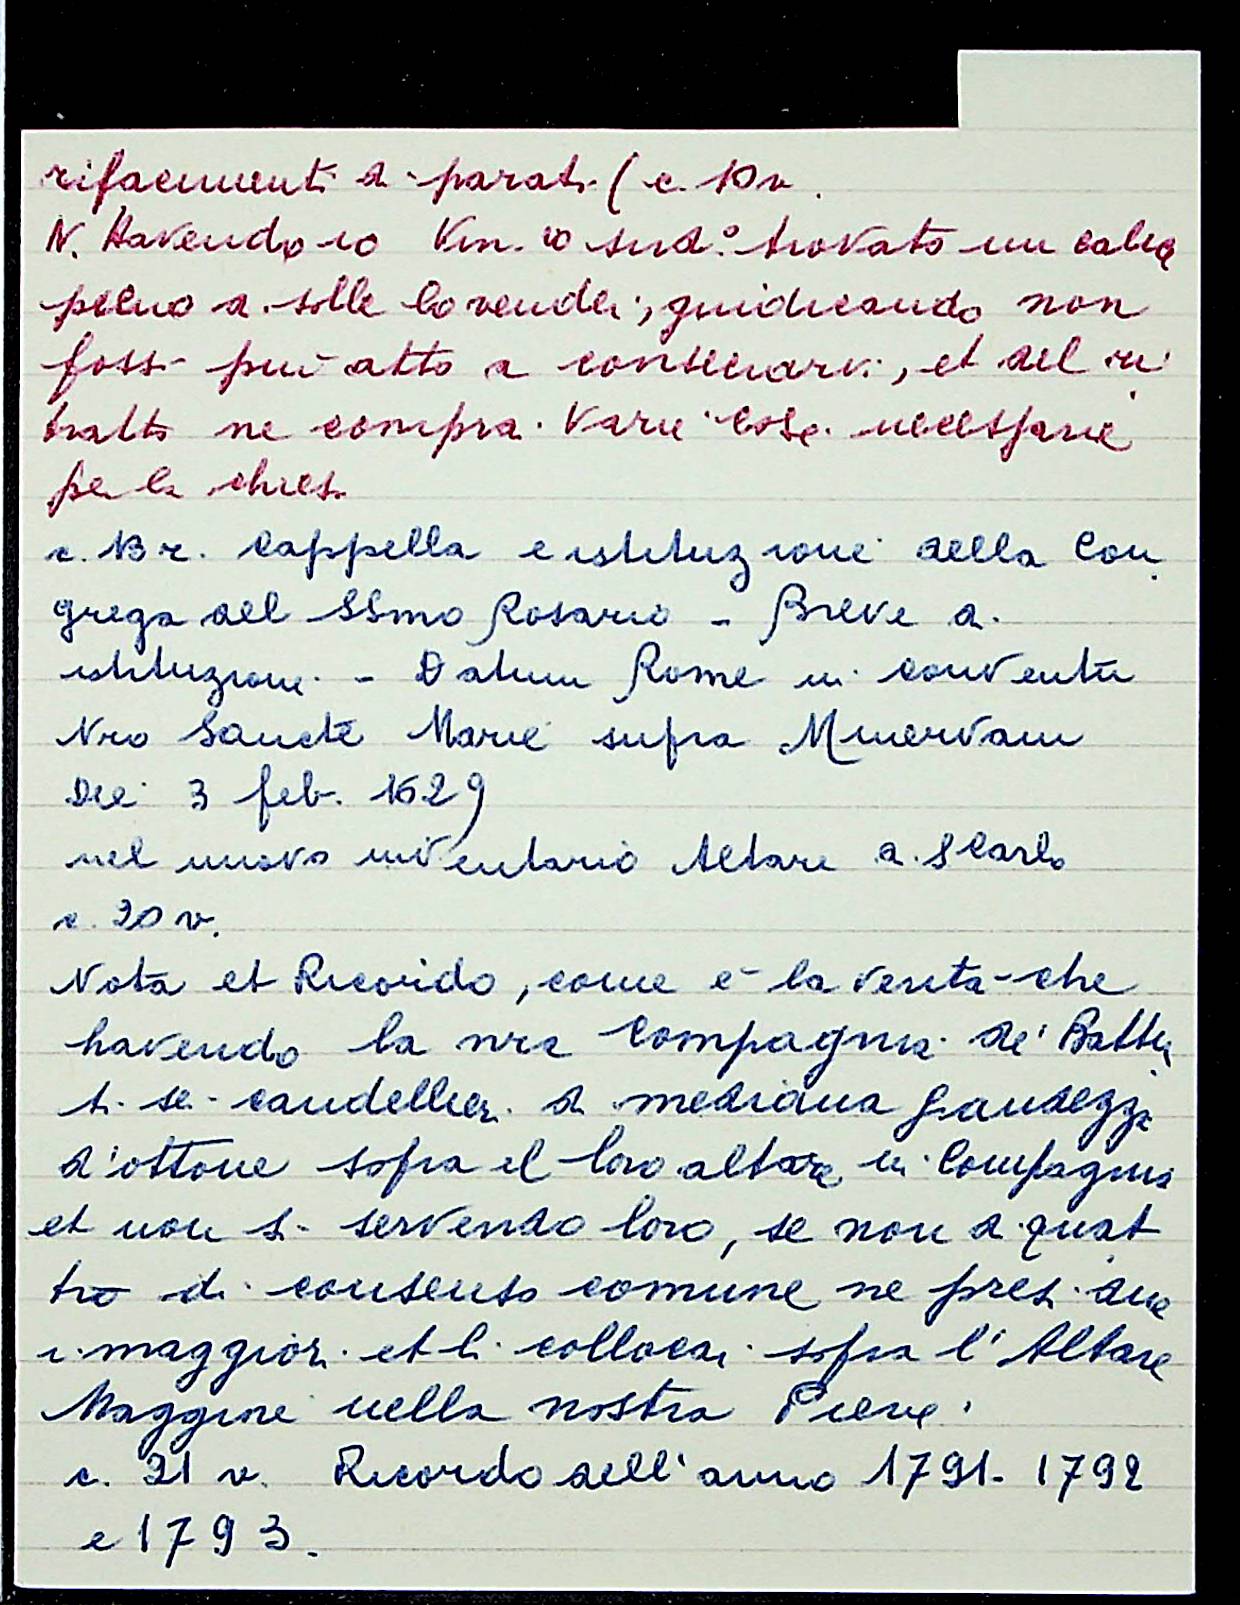 rifacimenti di parati (c. 10 v.
N. Havendo io Vin.io sud.o trovato un calice
pieno di bolle lo vendei, giudicando non
fosse piu atto a consecrarvi, et del ri
tratto ne comprai varie cose necessarie
per la chiesa
c. 13 r. Cappella e istituzione della Con
grega del SSmo Rosario - Breve di
istituzione - Datum Rome in conventu
Nro Sancte Marie supra Minervam
Die 3 feb. 1629
nel nuovo inventario Altare di S Carlo
c. 20 v.
Nota et Ricordo, come e la verita che
havendo la nra Compagnia de' Battu
ti sei candellieri di mediana grandezza
d'ottone sopra el loro altare in Compagnia
et non si servendo loro, se non di quat
tro di consenso comune ne presi due
i maggiori et li collocai sopra l'Altare
Maggiore nella nostra Pieve.
c. 21 v. Ricordo dell'anno 1791- 1792
e 1793.